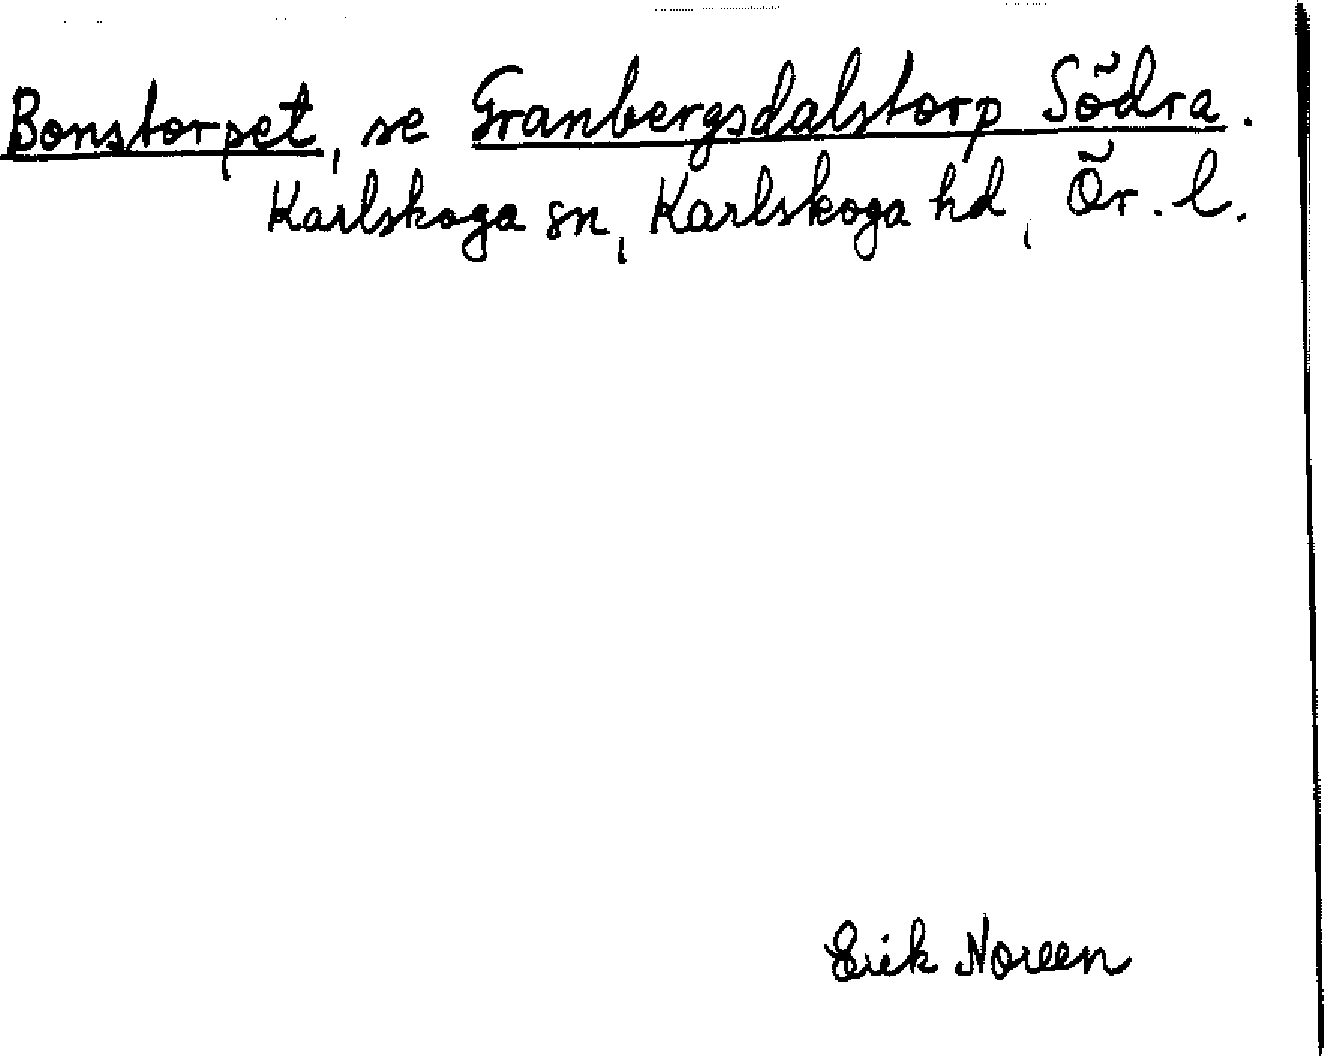 Bonstorpet, se Granbergsdalstorp Södra.
Karlskoga sn, Karlskoga hd, Ör. l.
Erik Noreen